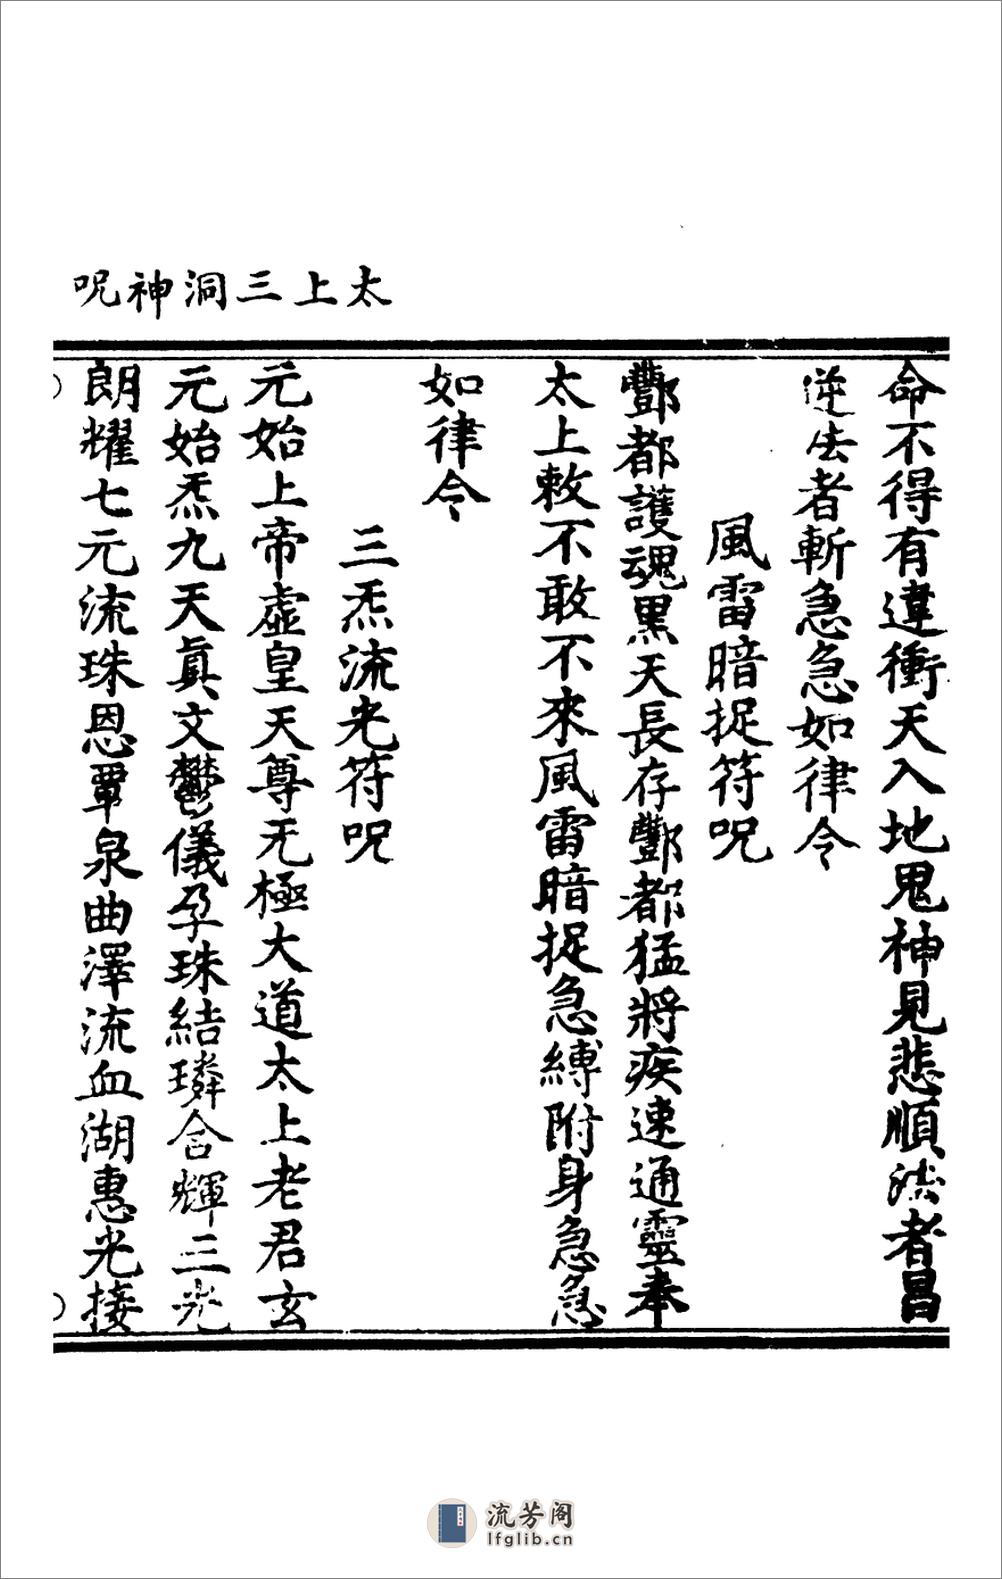 太上三洞神呪
命不得有違衝天入地鬼神見悲順法者昌
逆法者斬急急如律令
風雷暗捉符呪
酆都護魂黑天長存酆都猛將疾速通靈奉
太上敕不敢不來風雷暗捉急縛附身急急
如律令
三炁流光符呪
元始上帝虛皇天尊无極大道太上老君玄
元始炁九天眞文鬱儀孕珠結璘含輝三光
朗耀七元流珠恩覃泉曲澤流血湖惠光接
流芳阁
lfglib.cn